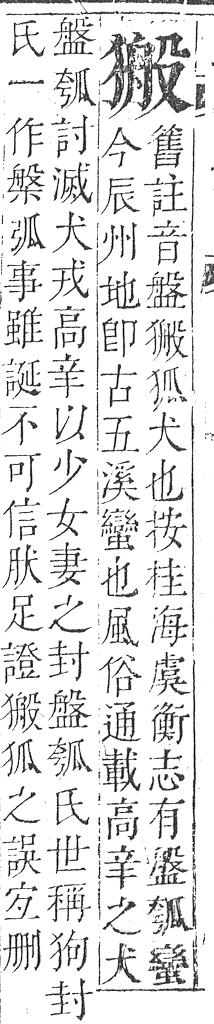 㺜
舊註音盤㺜狐犬也按桂海虞衡志有盤瓠蠻
今辰州地卽古五溪蠻也風俗通載高辛之犬
盤瓠討滅犬戎高辛以少女妻之封盤瓠氏世稱狗封
氏一作槃弧事雖誕不可信肰足證㺜狐之誤宐刪